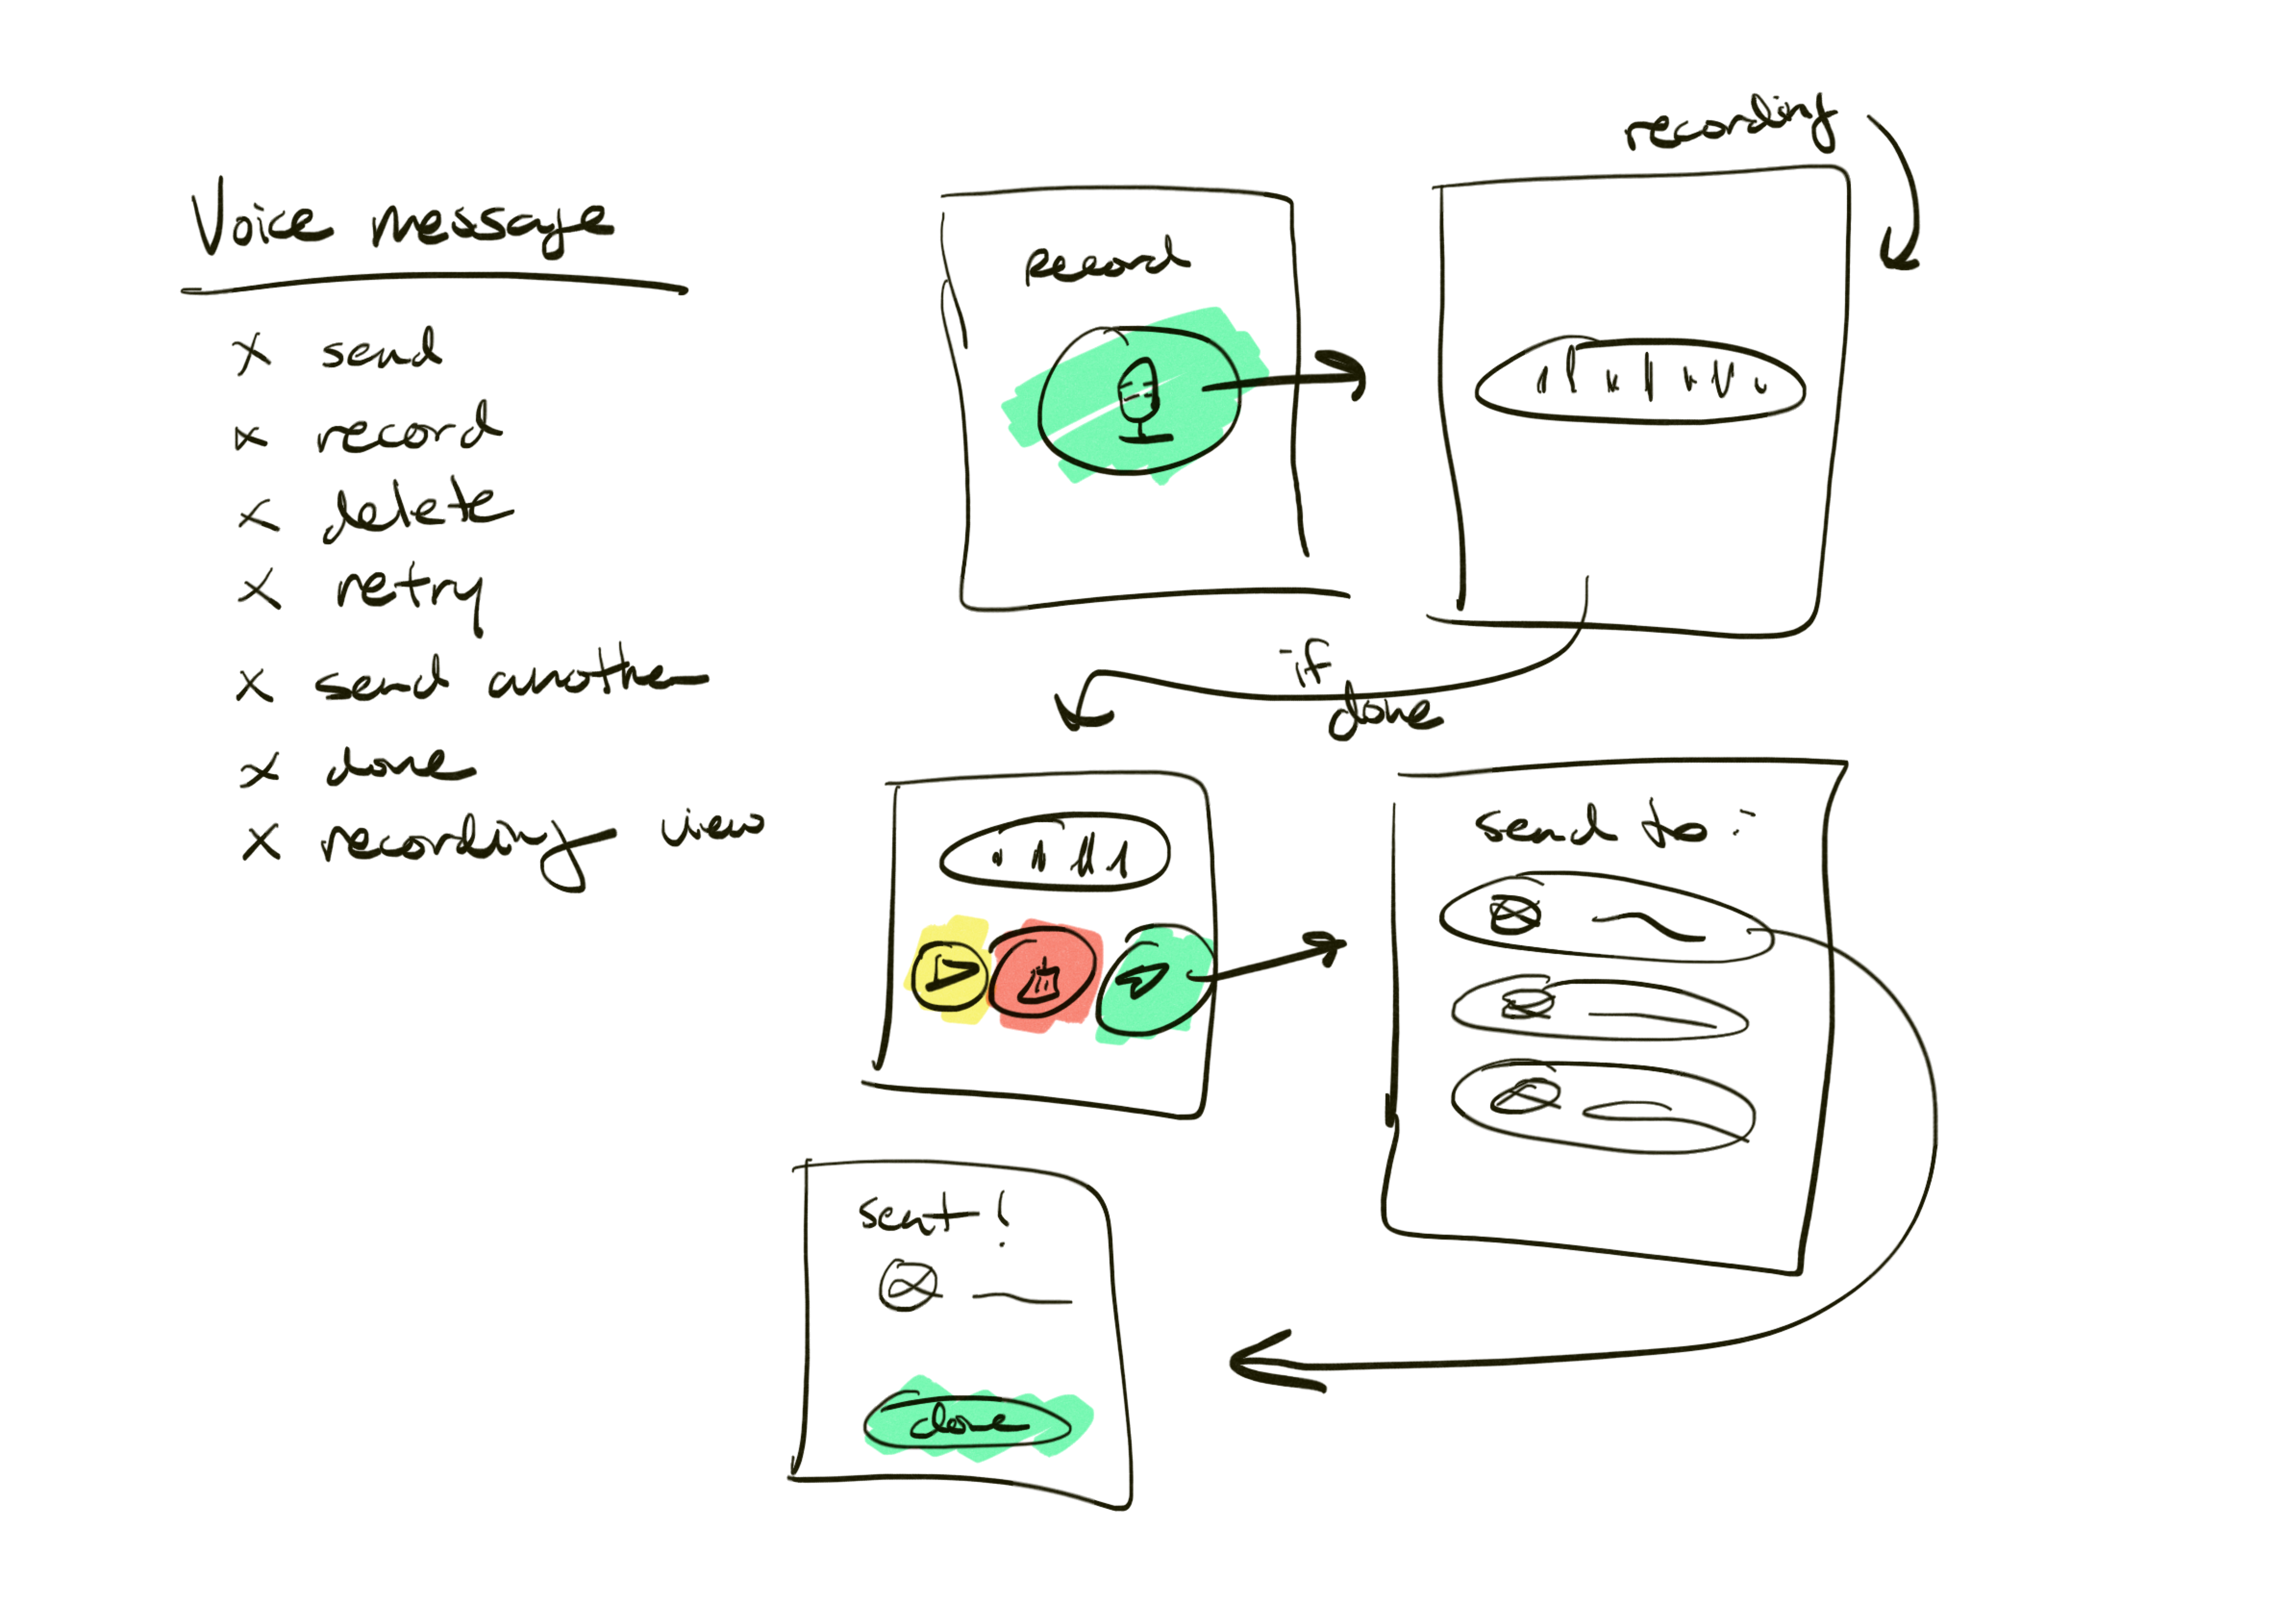 Voice message
x send
x record
x delete
x retry
x send another
x done
x recording view
record
recording
if
done
send to:
sent!
done